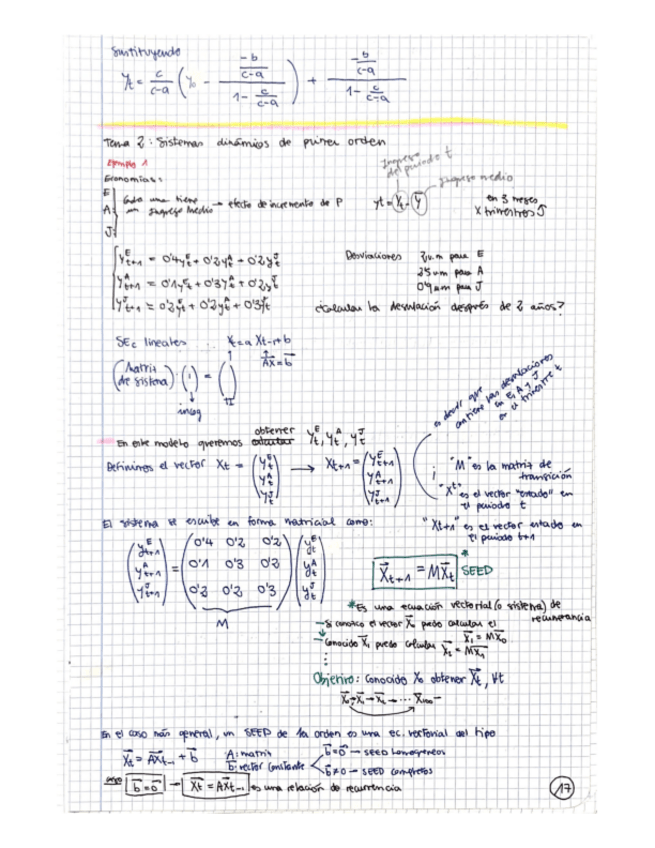 Sustituyendo
yt = c/(c-a) (y0 - (-b/(c-a))/(1 - c/(c-a))) + (-b/(c-a))/(1 - c/(c-a))
Tema 2: Sistemas dinámicos de primer orden
Ejemplo 1
Economías:
E
A
J
Cada una tiene un ingreso medio → efecto de incremento de P
yt = Yt - Ȳ
Ingreso del periodo t
Ingreso medio
en 3 meses
x trimestres J
y^E_t+1 = 0'4y^E_t + 0'2y^A_t + 0'2y^J_t
y^A_t+1 = 0'1y^E_t + 0'3y^A_t + 0'2y^J_t
y^J_t+1 = 0'2y^E_t + 0'2y^A_t + 0'3y^J_t
Desviaciones
2u.m para E
para A
para J
¿Calcular la desviación después de 2 años?
SEc lineales ... Xt = a Xt-1 + b
Ax = b
(Matriz de sistema) · ( ) = ( )
incog
TI
es decir que contiene las desviaciones en E, A y J en el trimestre t
En este modelo queremos obtener y^E_t, y^A_t, y^J_t
Definimos el vector Xt = (y^E_t y^A_t y^J_t) → Xt+1 = (y^E_t+1 y^A_t+1 y^J_t+1)
"M" es la matriz de transición
"Xt" es el vector "estado" en el periodo t
"Xt+1" es el vector estado en el periodo t+1
El sistema se escribe en forma matricial como:
(y^E_t+1 y^A_t+1 y^J_t+1) = (0'4 0'2 0'2
0'1 0'3 0'2
0'2 0'2 0'3) (y^E_t y^A_t y^J_t)
M
Xt+1 = MXt * SEED
*Es una ecuación vectorial (o sistema) de recurrencia
- Si conozco el vector X0 puedo calcular el X1 = MX0
- Conocido X1 puedo calcular X2 = MX1
⋮
Objetivo: Conocido X0 obtener Xt, ∀t
X0 → X1 → X2 → ... X100
En el caso más general, un SEED de 1a orden es una ec. vectorial del tipo
Xt = AXt-1 + b
A: matriz
b: vector constante
b = 0 — SEED homogéneos
b ≠ 0 — SEED completos
caso b = 0 → Xt = AXt-1 es una relación de recurrencia
17